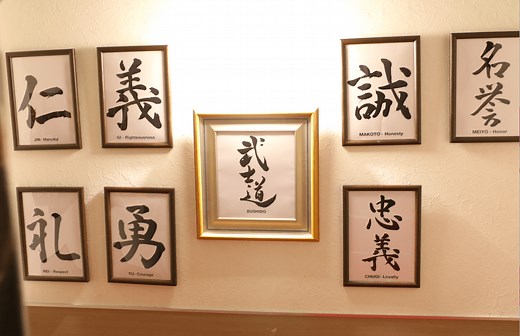 仁
JIN- Merciful
義
GI - Righteousness
誠
MAKOTO - Honesty
名誉
MEIYO - Honor
武士道
BUSHIDO
礼
REI - Respect
勇
YU - Courage
忠義
CHUGI - Loyalty